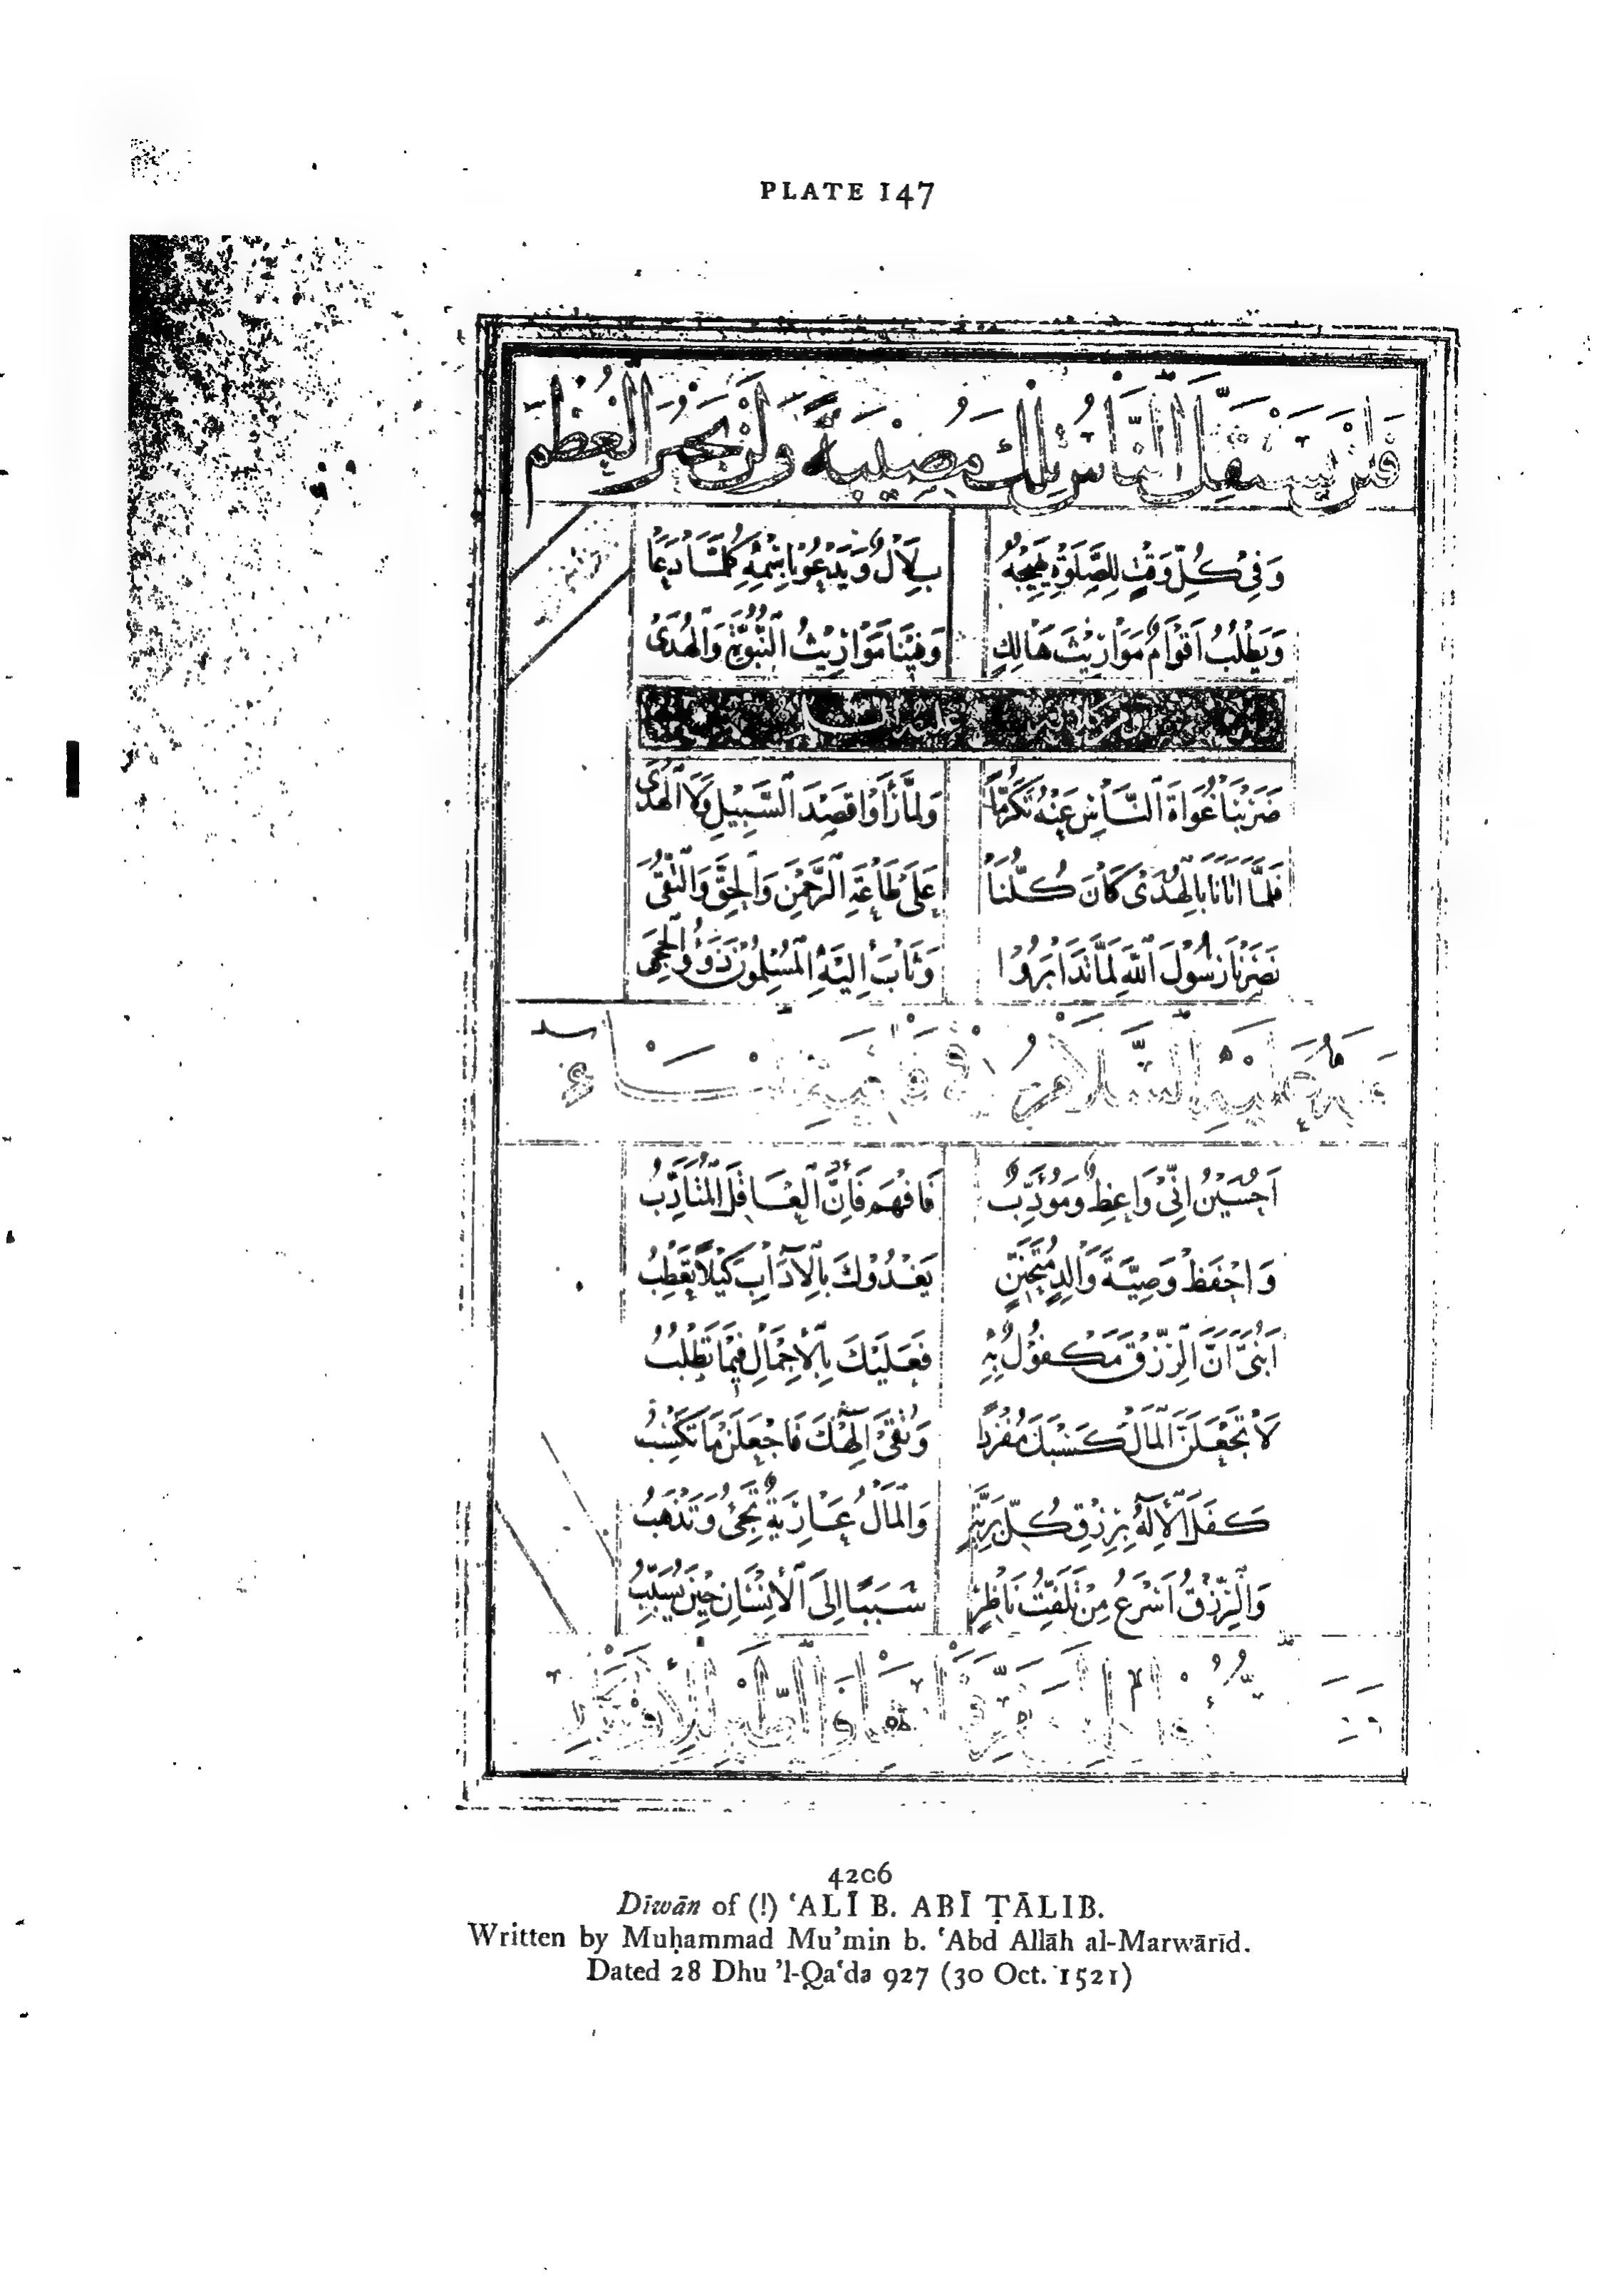 PLATE 147
فَلَنْ يَسْتَقِلَّ النَّاسُ تِلْكَ مُصِيبَةً وَلَنْ يُجْبَرَ الْعَظْمُ
وَفِيْ كُلِّ وَقْتٍ لِلصَّلٰوةِ يُهَيِّجُهُ بِلَالٌ وَيَدْعُوْ بِاسْمِهِ كُلَّمَا دَعَا
وَيَطْلُبُ اَقْوَامٌ مَوَارِيْثَ هَالِكٍ وَفِيْنَا مَوَارِيْثُ النُّبُوَّةِ وَالْهُدٰى
ضَرَبْنَا غُوَاةَ النَّاسِ عَنْهُ تَكَرُّمًا وَلَمَّا رَأَوْا قَصْدَ السَّبِيْلِ وَلَا الْهُدٰى
فَلَمَّا اَتَانَا بِالْهُدٰى كَانَ كُلُّنَا عَلٰى طَاعَةِ الرَّحْمٰنِ وَالْحَقِّ وَالتُّقٰى
نَصَرْنَا رَسُوْلَ اللهِ لَمَّا تَدَابَرُوْا وَثَابَ اِلَيْهِ الْمُسْلِمُوْنَ ذَوُو الْحِجٰى
عَلَيْهِ السَّلَامُ
اَحُسَيْنُ اِنِّيْ وَاعِظٌ وَمُؤَدِّبٌ فَافْهَمْ فَاِنَّ الْعَاقِلَ الْمُتَأَدِّبُ
وَاحْفَظْ وَصِيَّةَ وَالِدٍ مُتَحَنِّنٍ يَغْدُوْكَ بِالْآدَابِ كَيْلَا تَعْطَبُ
اَبُنَيَّ اِنَّ الرِّزْقَ مَكْفُوْلٌ بِهِ فَعَلَيْكَ بِالْاِجْمَالِ فِيْمَا تَطْلُبُ
لَا تَجْعَلَنَّ الْمَالَ كَسْبَكَ مُفْرَدًا وَتُقٰى اِلٰهِكَ فَاجْعَلَنْ مَا تَكْسِبُ
كَفَلَ الْاِلٰهُ بِرِزْقِ كُلِّ بَرِيَّةٍ وَالْمَالُ عَارِيَةٌ تَجِيْئُ وَتَذْهَبُ
وَالرِّزْقُ اَسْرَعُ مِنْ تَلَفُّتِ نَاظِرٍ سَبَبًا اِلَى الْاِنْسَانِ حِيْنَ يُسَبَّبُ
4206
Dīwān of (!) ʻALĪ B. ABĪ ṬĀLIB.
Written by Muḥammad Mu’min b. ʻAbd Allāh al-Marwārīd.
Dated 28 Dhu ’l-Qaʻda 927 (30 Oct. 1521)